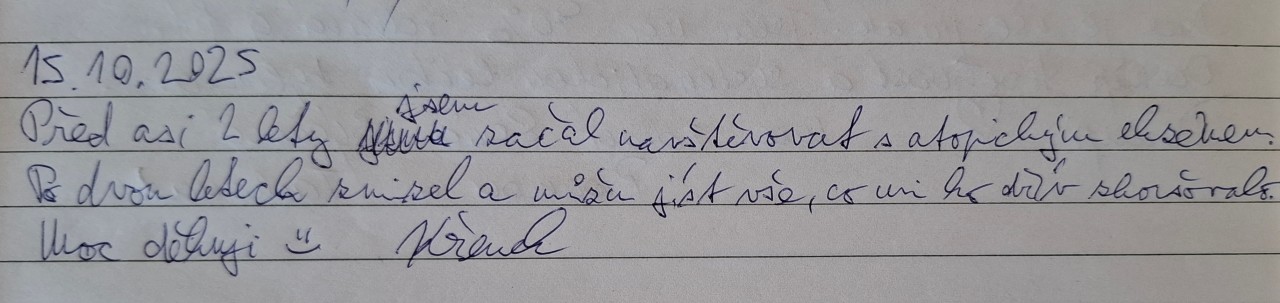 15.10.2025
Před asi 2 lety jsem začal navštěvovat s atopickým ekzémem.
Po dvou letech zmizel a můžu jíst vše, co mi ho dřív zhoršovalo.
Moc děkuji :)